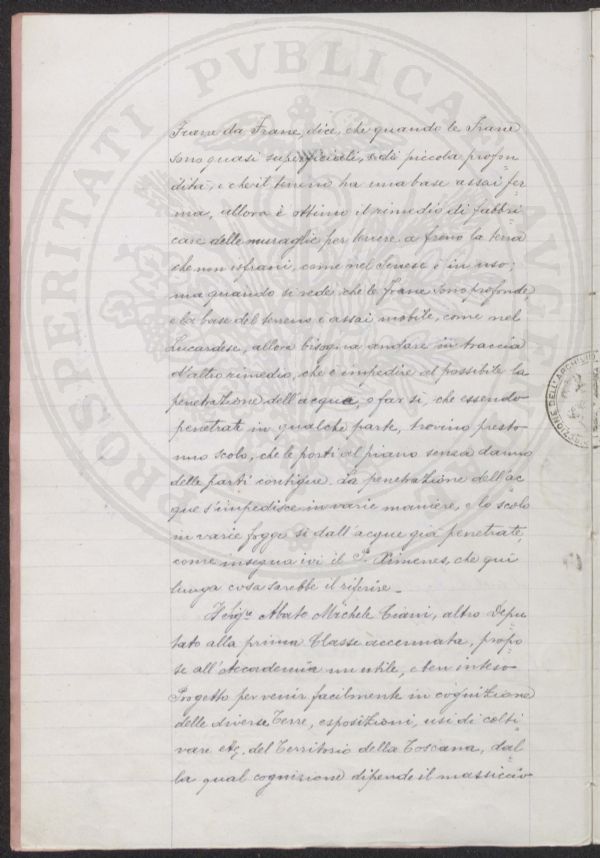 PROSPERITATI PVBLICAE AVGENDAE
Frane da Frane, dice, che quando le Frane
sono quasi superficiali, e di piccola profon=
dità, e che il terreno ha una base assai fer=
ma, allora è ottimo il rimedio di fabbri=
care delle muraglie per tenere a freno la terra
che non isfrani, come nel Senese è in uso;
ma quando si vede che le frane sono profonde,
e la base del terreno è assai mobile, come nel
Lucardese, allora bisogna andare in traccia
d'altro rimedio, che è impedire al possibile la
penetrazione dell'acqua, o far si, che essendo
penetrate in qualche parte, trovino presto
uno scolo, che le porti al piano senza danno
delle parti contigue. La penetrazione dell'ac
que s'impedisce in varie maniere, e lo scolo
in varie fogge si dall'acque già penetrate,
come insegna ivi il P. Ximenes, che qui
lunga cosa sarebbe il riferire.
Il Sigre Abate Michele Ciani, altro Depu
tato alla prima Classe accennata, propo=
se all'Accademia un utile, e ben inteso
Progetto per venir facilmente in cognizione
delle diverse Terre, esposizioni, usi di colti=
vare etc. del Territorio della Toscana, dal=
la qual cognizione dipende il massiccio